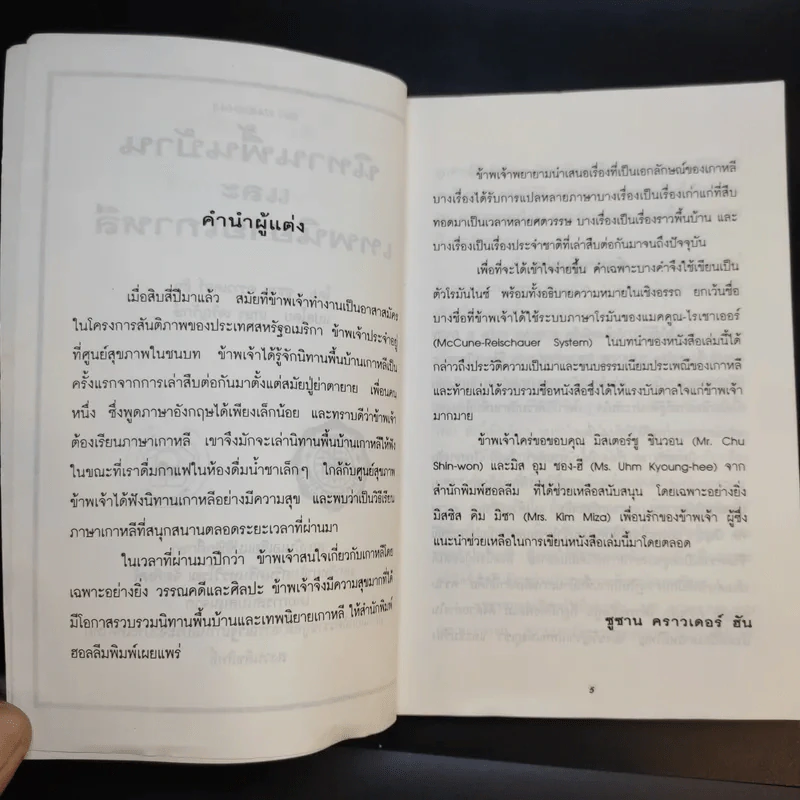 คำนำผู้แต่ง
เมื่อสิบสี่ปีมาแล้ว สมัยที่ข้าพเจ้าทำงานเป็นอาสาสมัคร
ในโครงการสันติภาพของประเทศสหรัฐอเมริกา ข้าพเจ้าประจำอยู่
ที่ศูนย์สุขภาพในชนบท ข้าพเจ้าได้รู้จักนิทานพื้นบ้านเกาหลีเป็น
ครั้งแรกจากการเล่าสืบต่อกันมาตั้งแต่สมัยปู่ย่าตายาย เพื่อนคน
หนึ่ง ซึ่งพูดภาษาอังกฤษได้เพียงเล็กน้อย และทราบดีว่าข้าพเจ้า
ต้องเรียนภาษาเกาหลี เขาจึงมักจะเล่านิทานพื้นบ้านเกาหลีให้ฟัง
ในขณะที่เราดื่มกาแฟในห้องดื่มน้ำชาเล็กๆ ใกล้กับศูนย์สุขภาพ
ข้าพเจ้าได้ฟังนิทานเกาหลีอย่างมีความสุข และพบว่าเป็นวิธีเรียน
ภาษาเกาหลีที่สนุกสนานตลอดระยะเวลาที่ผ่านมา
ในเวลาที่ผ่านมาปีกว่า ข้าพเจ้าสนใจเกี่ยวกับเกาหลีโดย
เฉพาะอย่างยิ่ง วรรณคดีและศิลปะ ข้าพเจ้าจึงมีความสุขมากที่ได้
มีโอกาสรวบรวมนิทานพื้นบ้านและเทพนิยายเกาหลี ให้สำนักพิมพ์
ฮอลลีมพิมพ์เผยแพร่
ข้าพเจ้าพยายามนำเสนอเรื่องที่เป็นเอกลักษณ์ของเกาหลี
บางเรื่องได้รับการแปลหลายภาษาบางเรื่องเป็นเรื่องเก่าแก่ที่สืบ
ทอดมาเป็นเวลาหลายศตวรรษ บางเรื่องเป็นเรื่องราวพื้นบ้าน และ
บางเรื่องเป็นเรื่องประจำชาติที่เล่าสืบต่อกันมาจนถึงปัจจุบัน
เพื่อที่จะได้เข้าใจง่ายขึ้น คำเฉพาะบางคำจึงใช้เขียนเป็น
ตัวโรมันไนซ์ พร้อมทั้งอธิบายความหมายในเชิงอรรถ ยกเว้นชื่อ
บางชื่อที่ข้าพเจ้าได้ใช้ระบบภาษาโรมันของแมคคูณ-ไรเชาเออร์
(McCune-Reischauer System) ในบทนำของหนังสือเล่มนี้ได้
กล่าวถึงประวัติความเป็นมาและขนบธรรมเนียมประเพณีของเกาหลี
และท้ายเล่มได้รวบรวมชื่อหนังสือซึ่งได้ให้แรงบันดาลใจแก่ข้าพเจ้า
มากมาย
ข้าพเจ้าใคร่ขอขอบคุณ มิสเตอร์ชู ชินวอน (Mr. Chu
Shin-won) และมิส อุม ชอง-ฮี (Ms. Uhm Kyoung-hee) จาก
สำนักพิมพ์ฮอลลีม ที่ได้ช่วยเหลือสนับสนุน โดยเฉพาะอย่างยิ่ง
มิสซิส คิม มิซา (Mrs. Kim Miza) เพื่อนรักของข้าพเจ้า ผู้ซึ่ง
แนะนำช่วยเหลือในการเขียนหนังสือเล่มนี้มาโดยตลอด
ซูซาน คราวเดอร์ ฮัน
5